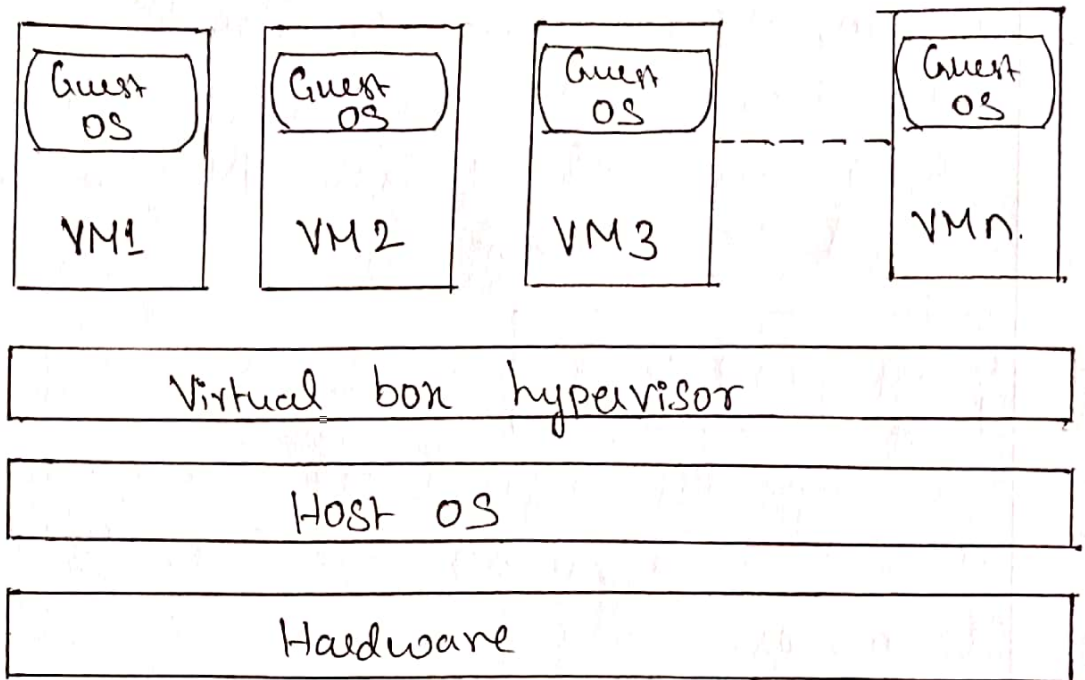 Guest
OS
VM1
Guest
OS
VM2
Guest
OS
VM3
Guest
OS
VMn.
Virtual box hypervisor
Host OS
Hardware